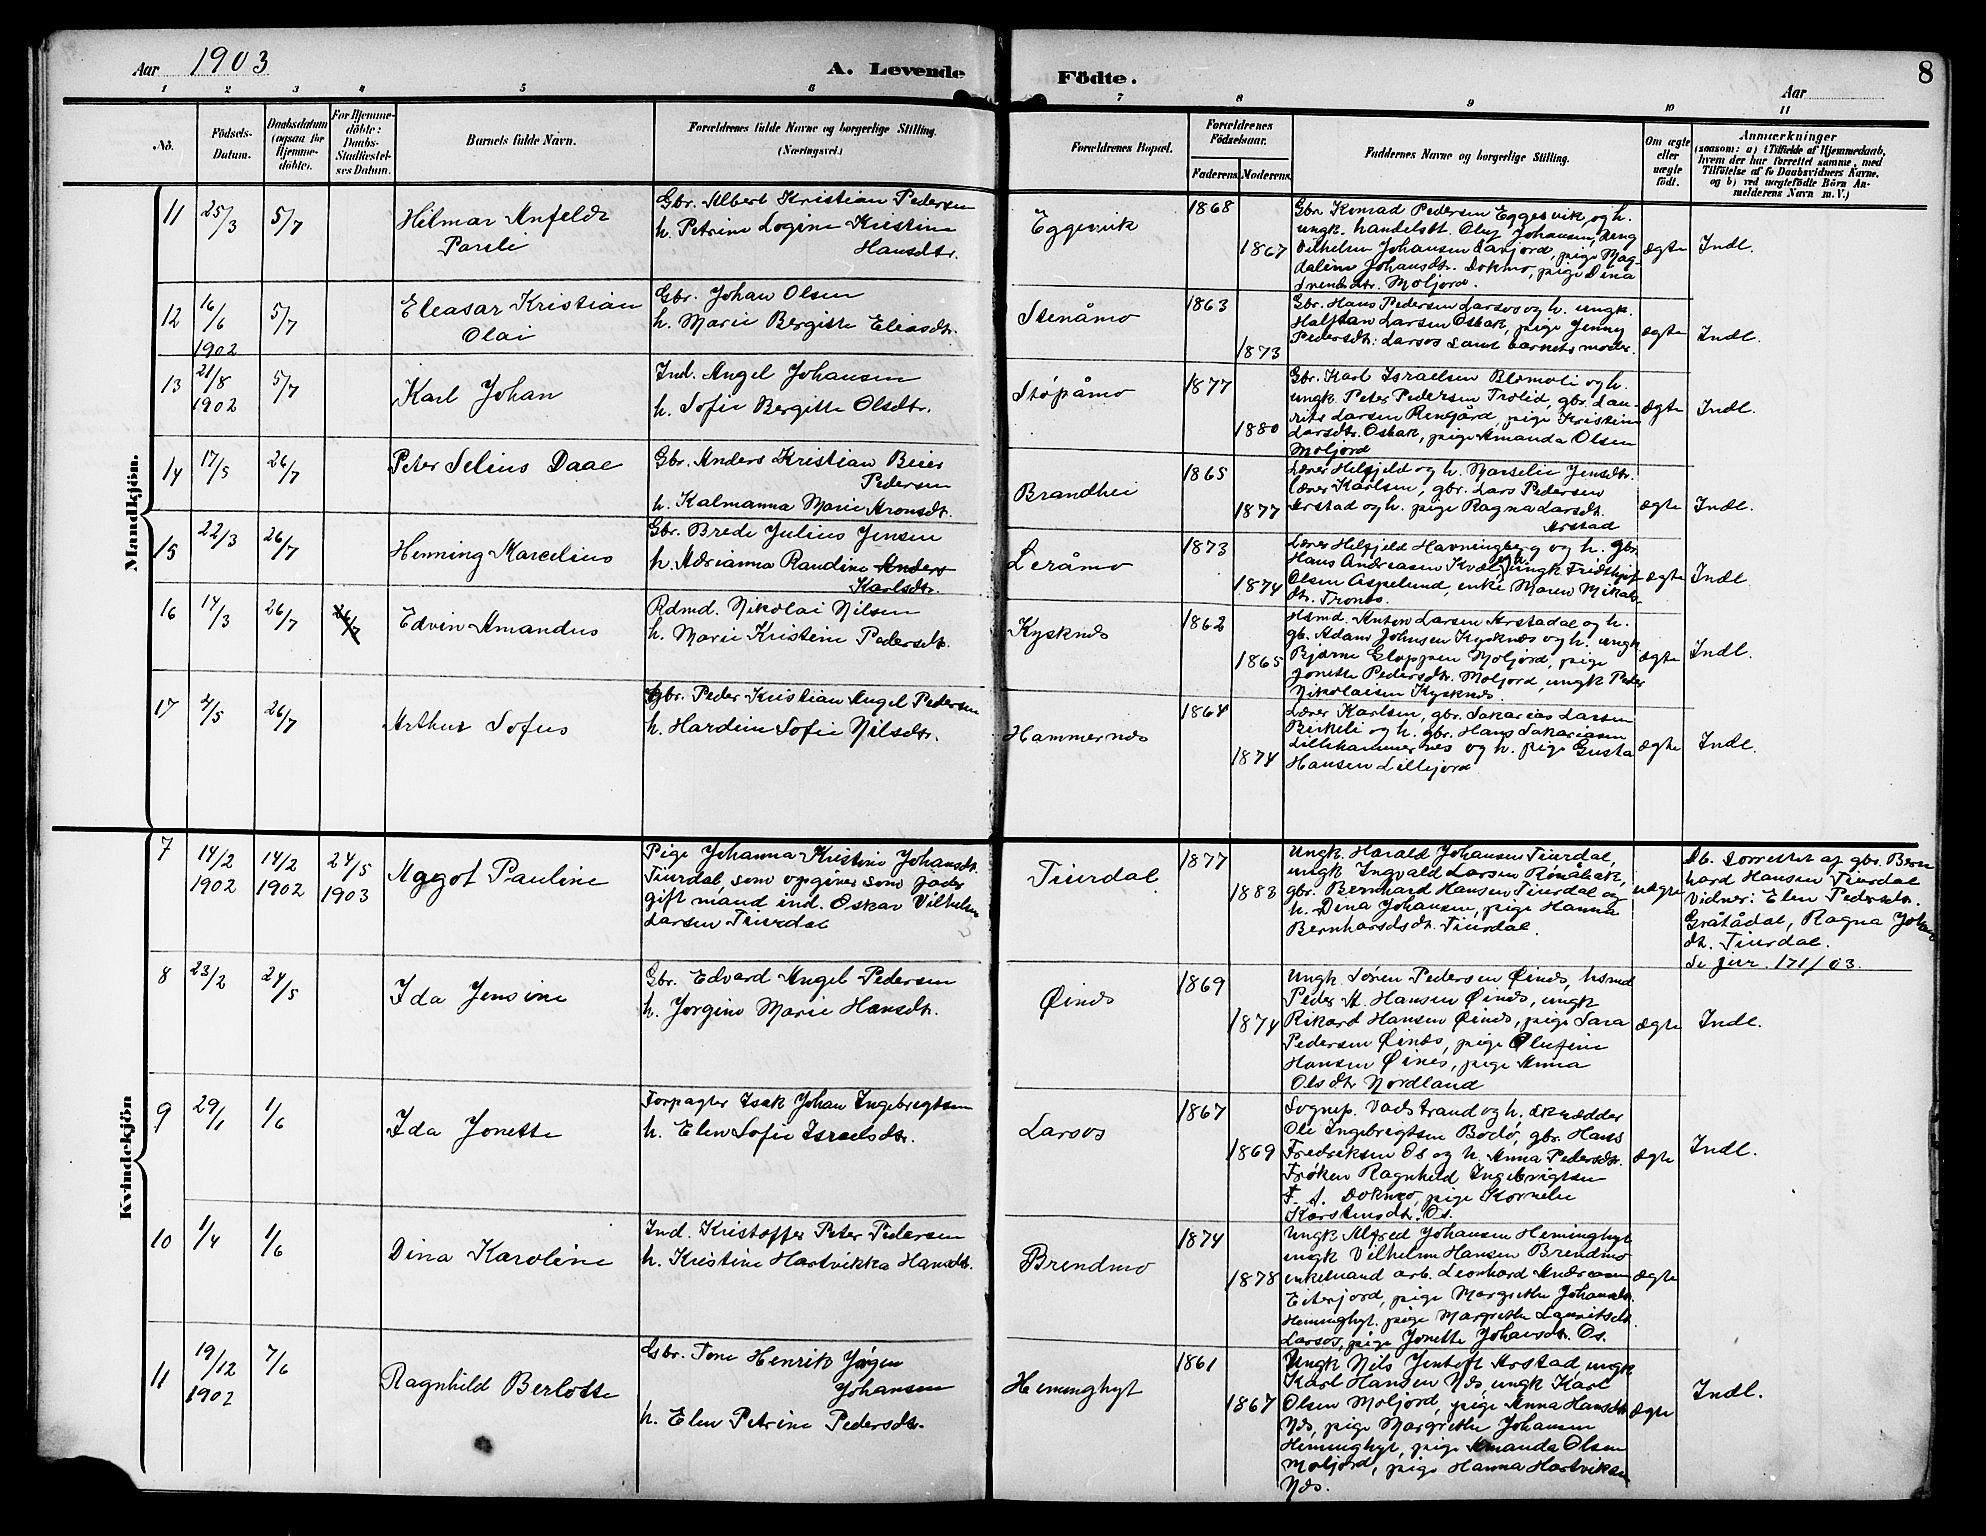 Aar 1903
A. Levende Födte.
Aar
8
1 2 3 4 5 6 7 8 9 10 11
No.
Födsels-Datum.
Daabsdatum (ogsaa för Hjemmedöbte).
For Hjemmedöbte: Daabs-Stadfæstelses Datum.
Barnets fulde Navn.
Forældrenes fulde Navne og borgerlige Stilling.
(Næringsvei.)
Forældrenes Bopæl.
Forældrenes Födselsaar.
Faderens. Moderens.
Faddernes Navne og borgerlige Stilling.
Om ægte eller uægte födt.
Anmærkninger
(saasom: a) i Tilfælde af Hjemmedaab, hvem der har forrettet samme, med Tilföielse af to Daabsvidners Navne. og b) ved uægtefödte Börn Anmelderens Navn m. V.)
Mandkjön.
11 25/3 5/7
Hilmar Anfeldt
Pareli
Gbr. Albert Kristian Pedersen
h. Petrine Logine Kristine
Hansdtr.
Eggesvik
1868
1867
Gbr. Konrad Pedersen Eggesvik, og h.
ungk. handelsbt. Oluf Johansen, dreng
Vilhelm Johansen Sanjord, pige Mag-
dalene Johansdtr. Dokmo, pige Dina
Svendsdtr. Moljord.
ægte
Indl.
12 16/6 1902 5/7
Eleasar Kristian
Olai
Gbr. Johan Olsen
h. Marie Bergitte Eliasdtr.
Stenåmo
1863
1873
Gbr. Hans Pedersen Larsos og h. ungk.
Halfdan Larsen Osbak, pige Jenny
Pedersdtr. Larsos samt barnets moder.
ægte
Indl.
13 21/8 1902 5/7
Karl Johan
Ind. Angel Johansen
h. Sofie Bergitte Olsdtr.
Støpåmo
1877
1880
Gbr. Karl Israelsen Blomoli og h.
ungk Peter Pedersen Trolid, gbr. Lau-
rits Larsen Rengård, pige Kristine
Larsdtr. Osbak, pige Amanda Olsen
Moljord
ægte
Indl.
14 17/5 26/7
Peter Selius Daae
Gbr. Anders Kristian Beier
Pedersen
h. Kalmanna Marie Aronsdtr.
Brandhei
1865
1877
Lærer Helfjeld og h. Marselie Jensdtr.
lærer Karlsen, gbr. Lars Pedersen
Arstad og h. pige Ragna Larsdtr.
Arstad
ægte
Indl.
15 22/3 26/7
Henning Marcelius
Gbr. Brede Julius Jensen
h. Adrianna Randine Anders
Karlsdtr.
Leråmo
1873
1874
Lærer Helfjeld Havningberg og h. gbr.
Hans Andreasen Kvæl og h. ungk Fridthjof
Olsen Aspelund, enke Maren Mikals-
dtr. Trones.
ægte
Indl.
16 14/3 26/7 26/7
Edvin Amandus
Rdmd. Nikolai Nilsen
h. Marie Kristine Pedersdtr.
Kysknes
1862
1865
Hsmd. Anton Larsen Arstadal og h.
gb. Adam Johnsen Kysknes og h. ungk
Bjarne Gloppen Moljord, pige
Jonette Pedersdtr. Moljord, ungk Peder
Nikolaisen Kysknes.
ægte
Indl.
17 4/5 26/7
Arthur Sofus
Gbr. Peder Kristian Angel Pedersen
h. Hardine Sofie Nilsdtr.
Hammernes
1864
1874
Lærer Karlsen, gbr. Sakarias Larsen
Birkeli og h. gbr. Hans Sakariasen
Lillehammernes og h. pige Gusta
Hansen Lillejord
ægte
Indl.
Kvindekjön
7 14/2 1902 14/2 1902 24/5 1903
Aagot Pauline
Pige Johanna Kristine Johansdt.
Tiurdal, som opgiver som fader
gift mand ind. Oskar Vilhelm
Larsen Tiurdal
Tiurdal
1877
1883
Ungk. Harald Johansen Tiurdal,
ungk Ingvald Larsen Rønåbak,
gbr. Bernhard Hansen Tiurdal og
h. Dina Johansen, pige Hanna
Bernhardsdt. Tiurdal.
uægte
Db. forrettet af gbr. Bern
hard Hansen Tiurdal
Vidner: Elen Pedersdtr.
Gråtådal, Ragna Johan
dt. Tiurdal.
Se jur. 171/03.
8 23/2 24/5
Ida Jensine
Gbr. Edvard Angel Pedersen
h. Jorgine Marie Hansdt.
Øines
1869
1874
Ungk Søren Pedersen Øines, hsmd
Peder A. Hansen Øines, ungk
Rikard Hansen Øines, pige Sara
Pedersen Øines, pige Olufine
Hansen Øines, pige Anna
Olsdtr Nordland
ægte
Indl.
9 29/1 1/6
Ida Jonette
Forpagter Isak Johan Ingebrigtsen
h. Elen Sofie Israelsdtr.
Larsos
1867
1869
Sognep. Vadstrand og h. skrædder
Ole Ingebrigtsen Bodø, gbr. Hans
Fredriksen Os og h. Anna Pedersdtr.
Frøken Ragnhild Ingebrigtsen
F. S. Dokmo, pige Kornelie
Karstensdtr. Os.
ægte
Indl.
10 1/4 1/6
Dina Karoline
Ind. Kristoffer Peter Pedersen
h. Kristine Hartvikka Hansdt.
Brendmo
1874
1878
Ungk Alfred Johansen Heminghyt
ungk Vilhelm Hansen Brendmo
enkemand arb. Leonhard Andreasen
Eiterjord, pige Margrethe Johansdt.
Heminghyt. pige Margrethe Lauritsdt.
Larsos, pige Jonette Johansdt. Os.
ægte
11 19/12 1902 7/6
Ragnhild Berlotte
Gbr. Tone Henrik Jørgen
Johansen
h. Elen Petrine Pedersdtr.
Heminghyt
1861
1867
Ungk Nils Jentoft Arstad, ungk
Karl Hansen Nes, ungk Karl
Olsen Moljord, pige Anna Hansdt
Nes, pige Margrethe Johansen
Heminghyt, pige Amanda Olsen
Moljord, pige Hanna Hartviksen
Nes.
ægte
Indl.